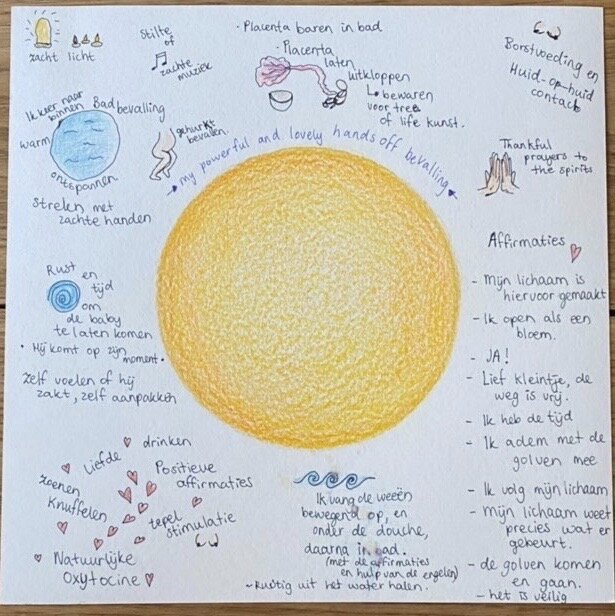 zacht licht
Stilte
of
zachte
muziek
· Placenta baren in bad
· Placenta
laten
uitkloppen
↳ bewaren
voor tree
of life kunst.
Borstvoeding en
Huid-op-huid
contact
Ik keer naar
binnen
Badbevalling
warm
ontspannen
gehurkt
bevallen.
my powerful and lovely hands off bevalling
Thankful
prayers to
the spirits
Strelen met
zachte handen
Rust en
tijd
om
de baby
te laten komen
· Hij komt op zijn
moment.
Zelf voelen of hij
zakt, zelf aanpakken
Affirmaties
- Mijn lichaam is
hiervoor gemaakt
- Ik open als een
bloem.
- JA!
- Lief kleintje, de
weg is vrij.
- Ik heb de tijd
- Ik adem met de
golven mee
- Ik volg mijn lichaam
- mijn lichaam weet
precies wat er
gebeurt.
- de golven komen
en gaan.
- het is veilig
drinken
Liefde
Positieve
affirmaties
Zoenen
Knuffelen
tepel
stimulatie
Natuurlijke
Oxytocine
Ik vang de weeën
bewegend op, en
onder de douche,
daarna in bad.
(met de affirmaties
en hulp van de engelen)
~ Rustig uit het water halen.